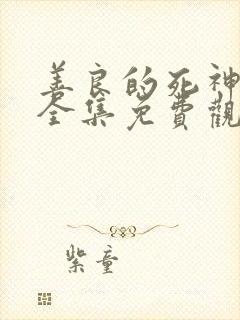 善良的死神
全集免費觀
紫童